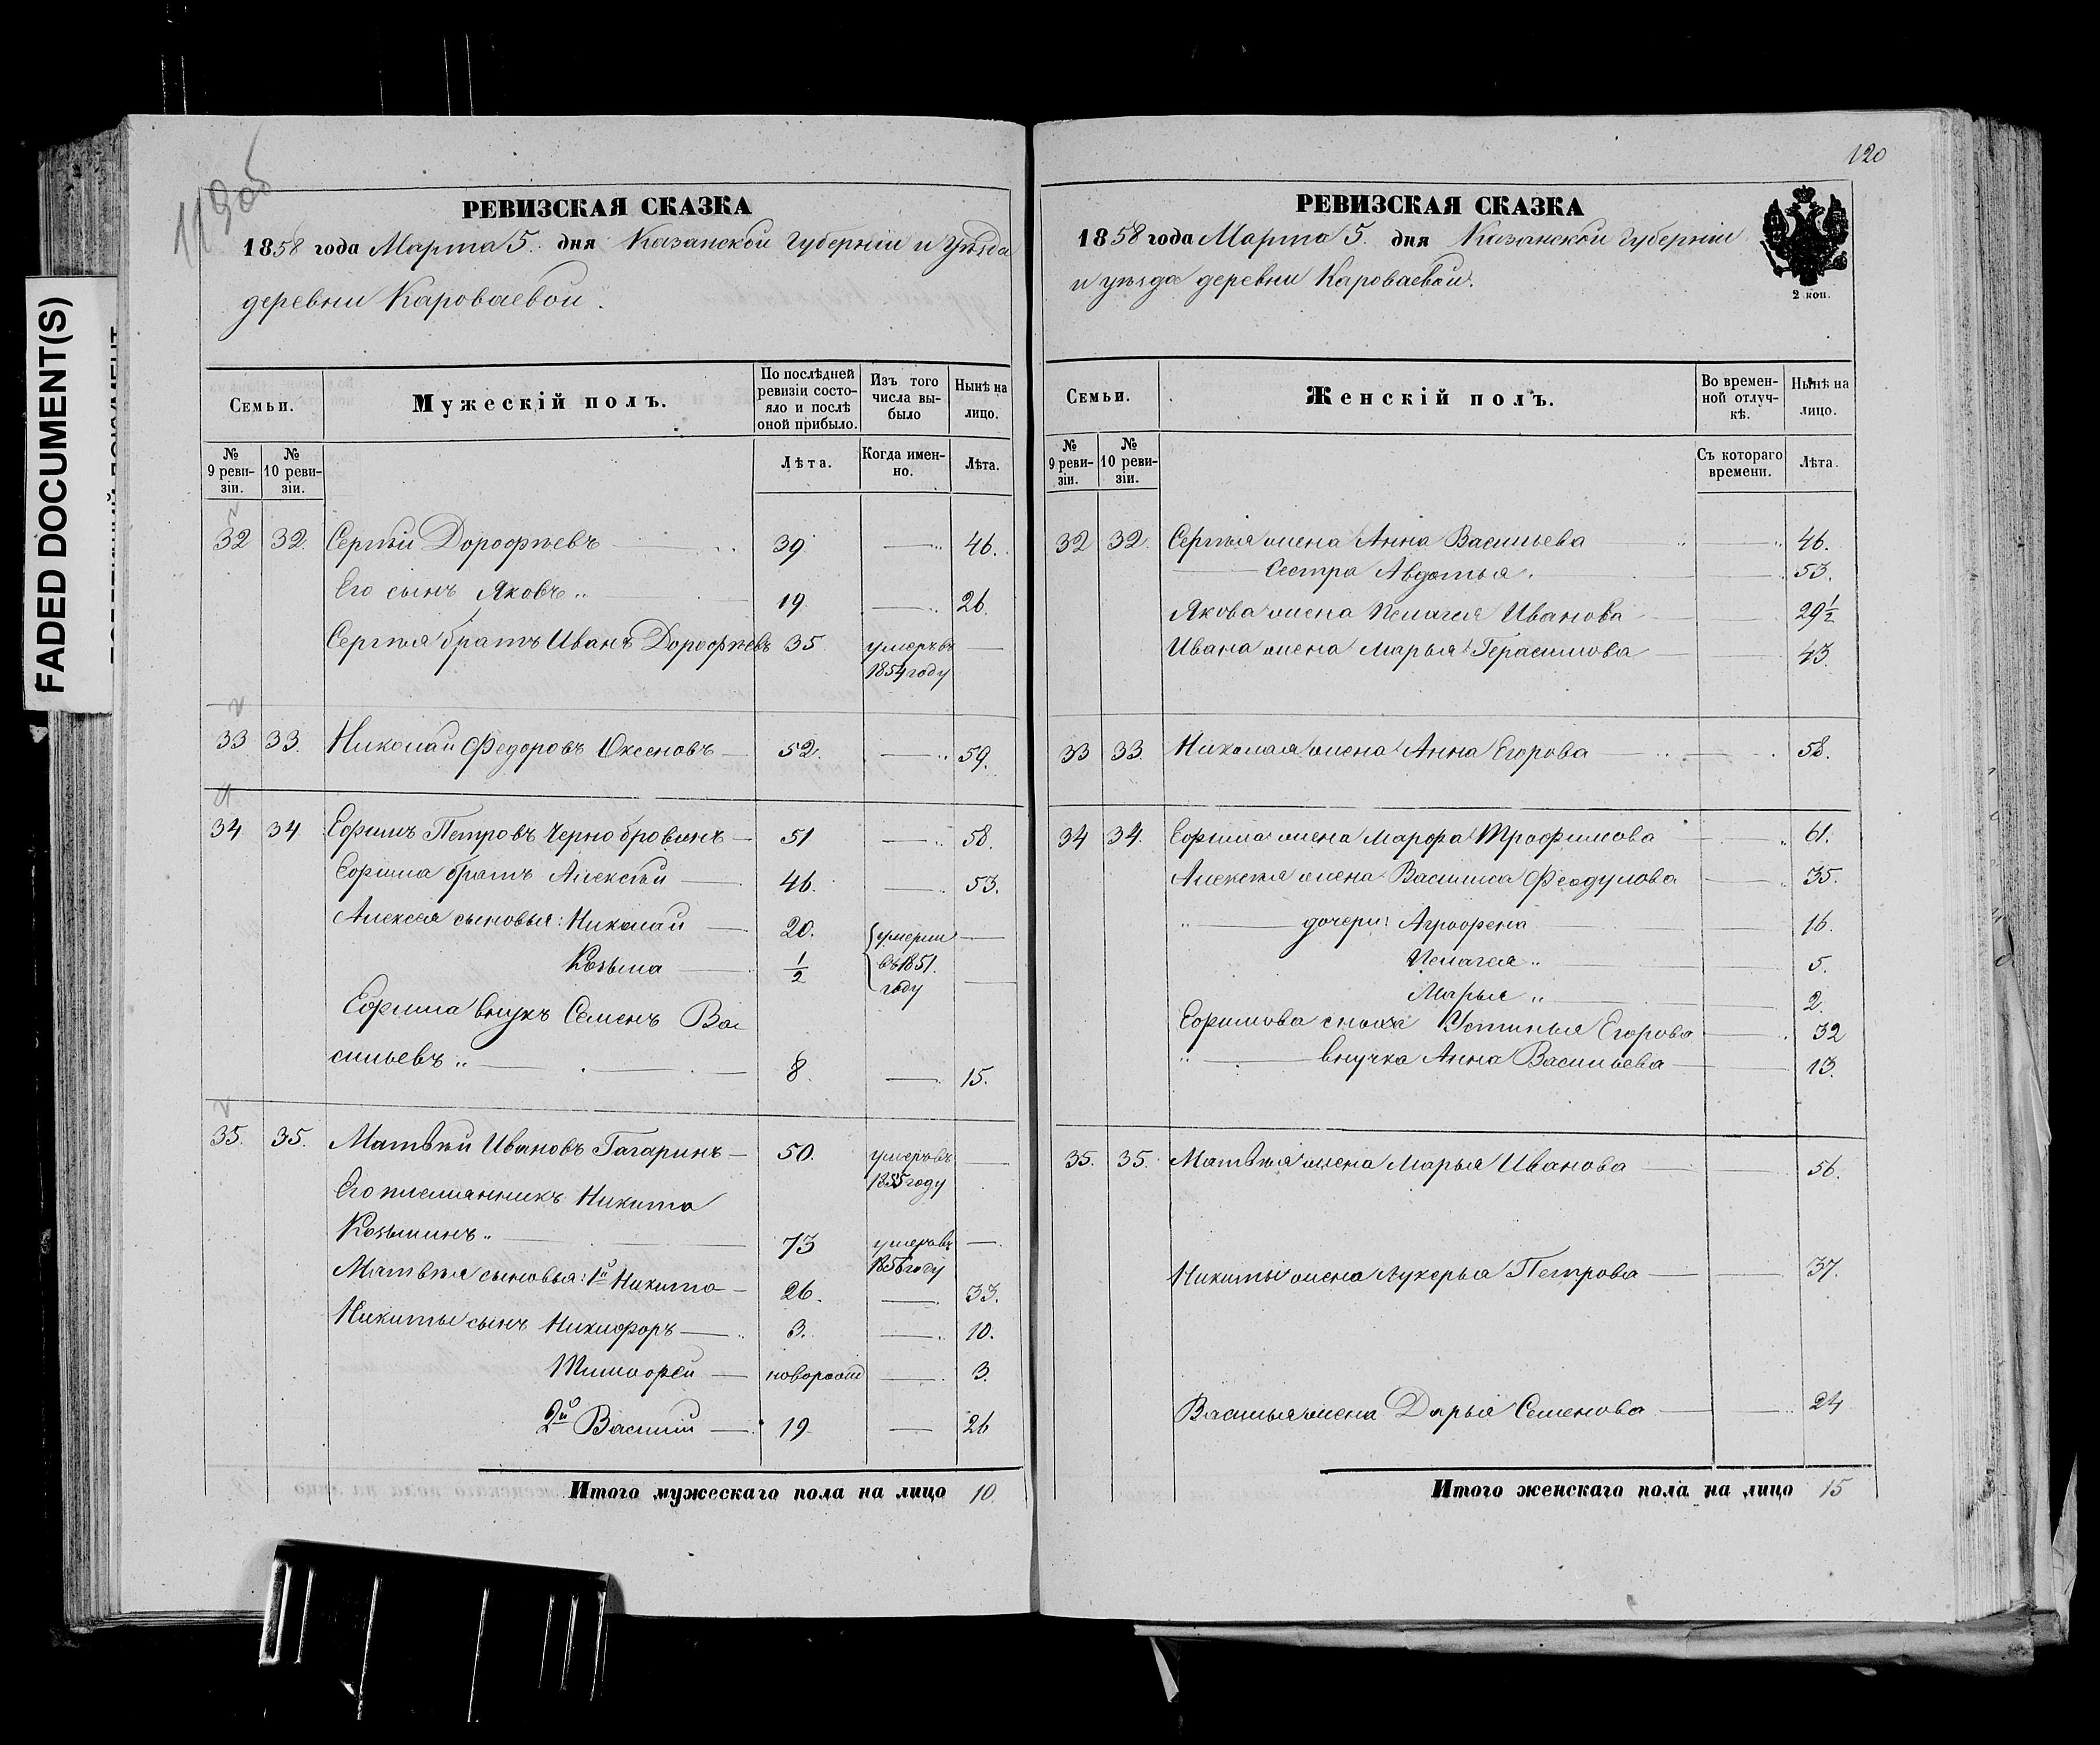 FADED DOCUMENT(S)
119 об
РЕВИЗСКАЯ СКАЗКА
1858 года Марта 5. дня Казанской губерніи и Уѣзда
деревни Кароваевой.
Семьи.
Мужескій полъ.
По послѣдней ревизіи состояло и послѣ оной прибыло.
Изъ того числа выбыло
Нынѣ на лицо.
№ 9 ревизіи.
№ 10 ревизіи.
Лѣта.
Когда именно.
Лѣта.
32 32. Сергѣй Дорофѣевъ 39 — 46.
Его сынъ Яковъ 19 — 26.
Сергѣя братъ Иванъ Дорофѣевъ 35 умеръ въ —
1854 году
33 33. Николай Федоровъ Оксеновъ — 52. — 59.
34 34 Ефимъ Петровъ Чернобровинъ — 51 — 58.
Ефима братъ Алексѣй — 46. — 53.
Алексея сыновья: Николай — 20. умерли —
Козьма — 1/2 въ 1851. —
году
Ефима внукъ Семенъ Ва
сильевъ — 8. — 15.
35. 35. Матвѣй Ивановъ Гагаринъ — 50. умеръ въ —
1855 году
Его племянникъ Никита
Козьминъ — 73 умеръ въ —
1856 году
Матвѣя сыновья: 1й Никита — 26. — 33.
Никиты сынъ Никифоръ — 3. — 10.
Тимофей — новорожд — 3.
2й Василій — 19 — 26
Итого мужескаго пола на лицо 10.
120
РЕВИЗСКАЯ СКАЗКА
1858 года Марта 5. дня Казанской губерніи
и уѣзда деревни Кароваевой.
2 коп.
Семьи.
Женскій полъ.
Во временной отлучкѣ.
Нынѣ на лицо.
№ 9 ревизіи.
№ 10 ревизіи.
Съ котораго времени.
Лѣта.
32 32. Сергѣя жена Анна Васильева — 46.
— Сестра Авдотья. — 53.
Якова жена Пелагея Иванова — 29 1/2
Ивана жена Марья Герасимова — 43.
33 33. Николая жена Анна Егорова — 58.
34 34. Ефима жена Марфа Трофимова — 61.
Алексѣя жена Василиса Феодулова — 35.
— дочери: Агрофена — 16.
Пелагея — 5.
Марья — 2.
Ефимова сноха Устинья Егорова — 32
— внучка Анна Васильева — 13.
35. 35. Матвѣя жена Марья Иванова — 56.
Никиты жена Лукерья Петрова — 37.
Василья жена Дарья Семенова — 24
Итого женскаго пола на лицо 15